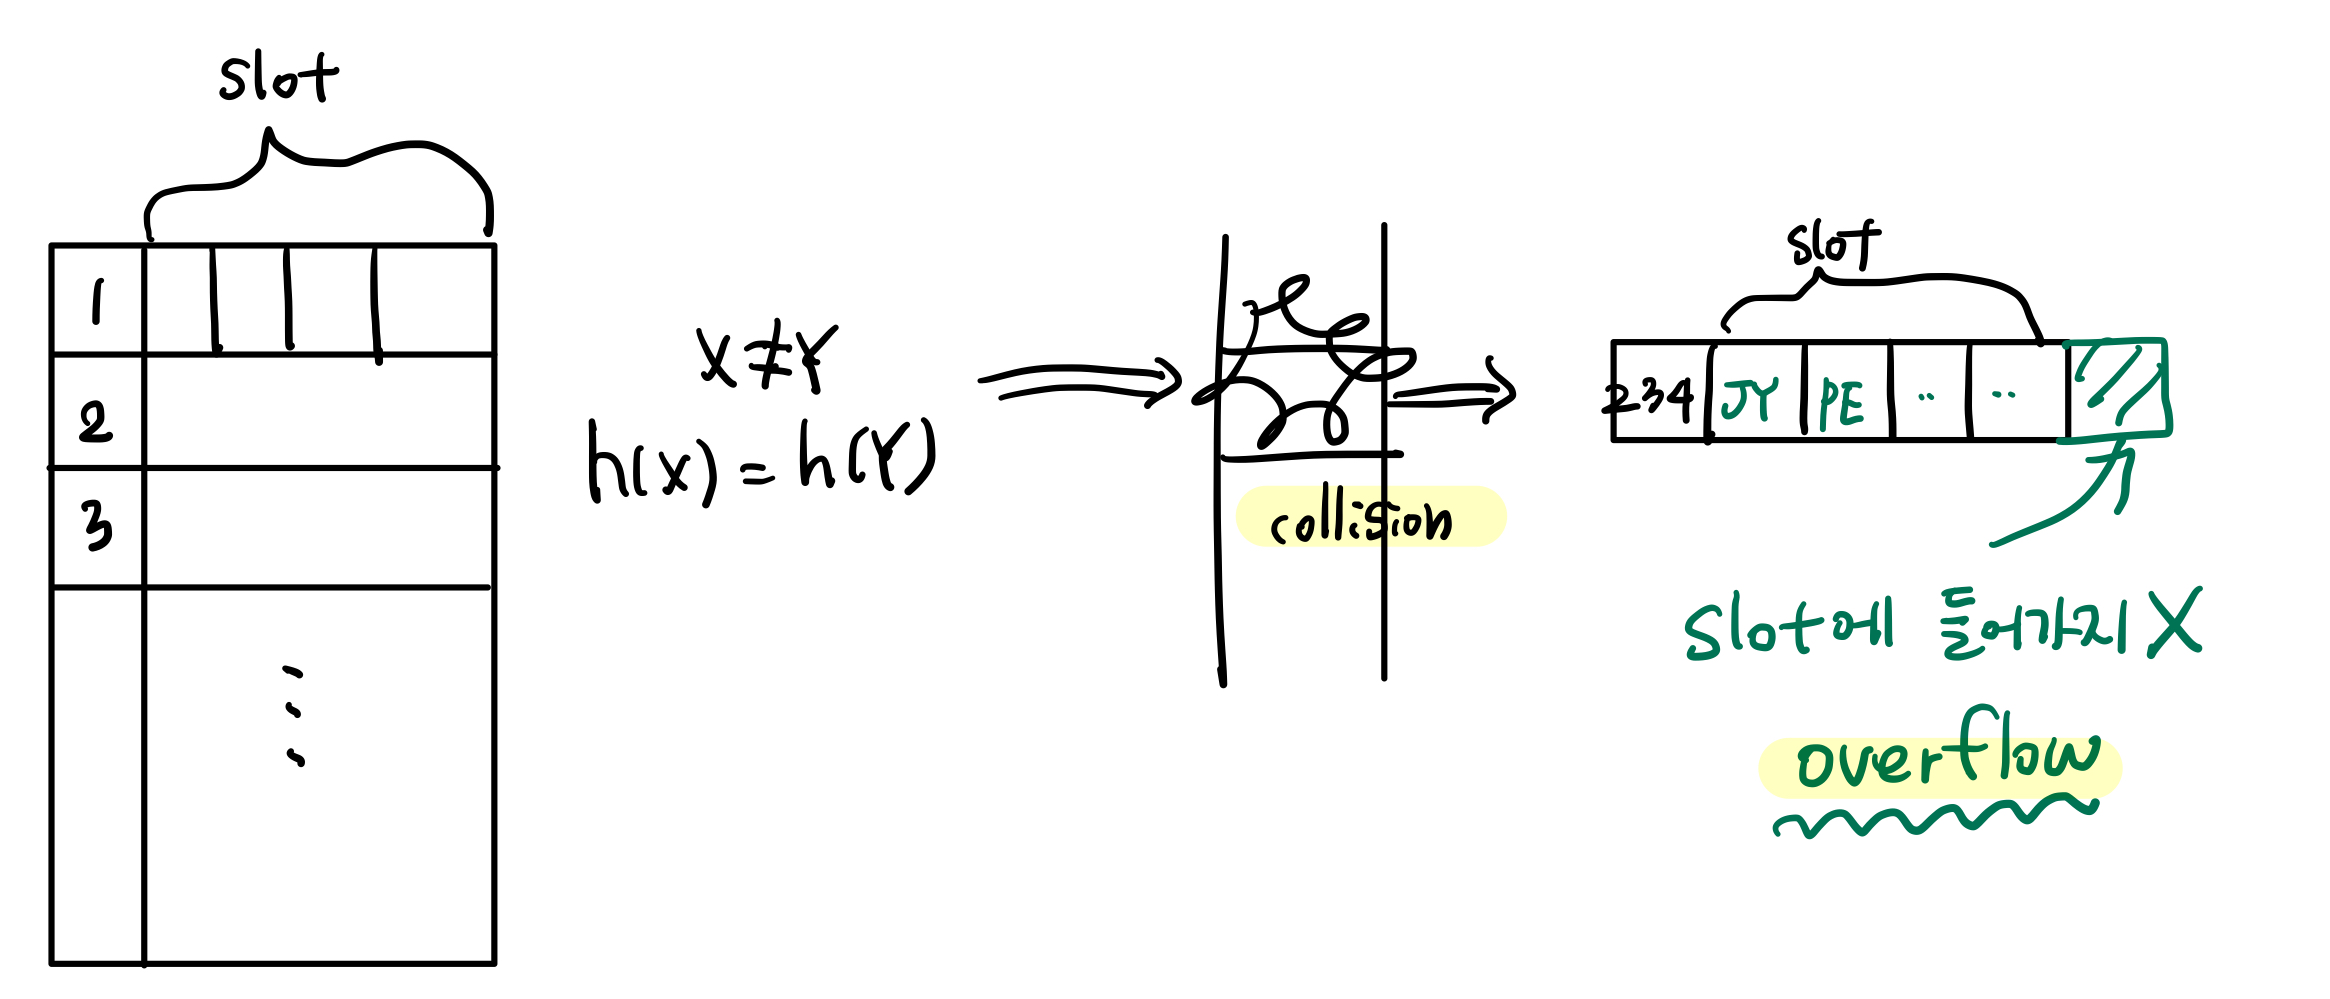 slot
1
2
3
X ≠ Y
h(x) = h(Y)
collison
slot
234 JY PE .. ..
slot에 들어가지 X
overflow